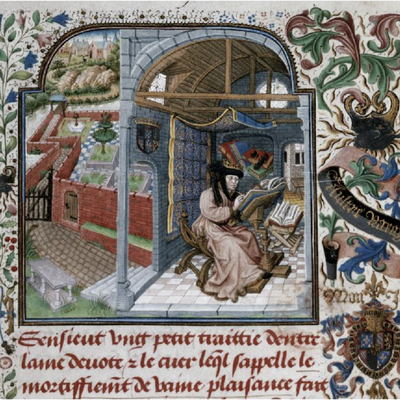 Sensieut vng petit traittie dentre
lame deuote & le cuer leql sappelle le
mortiffiemt de vaine plaisance fait
Mon